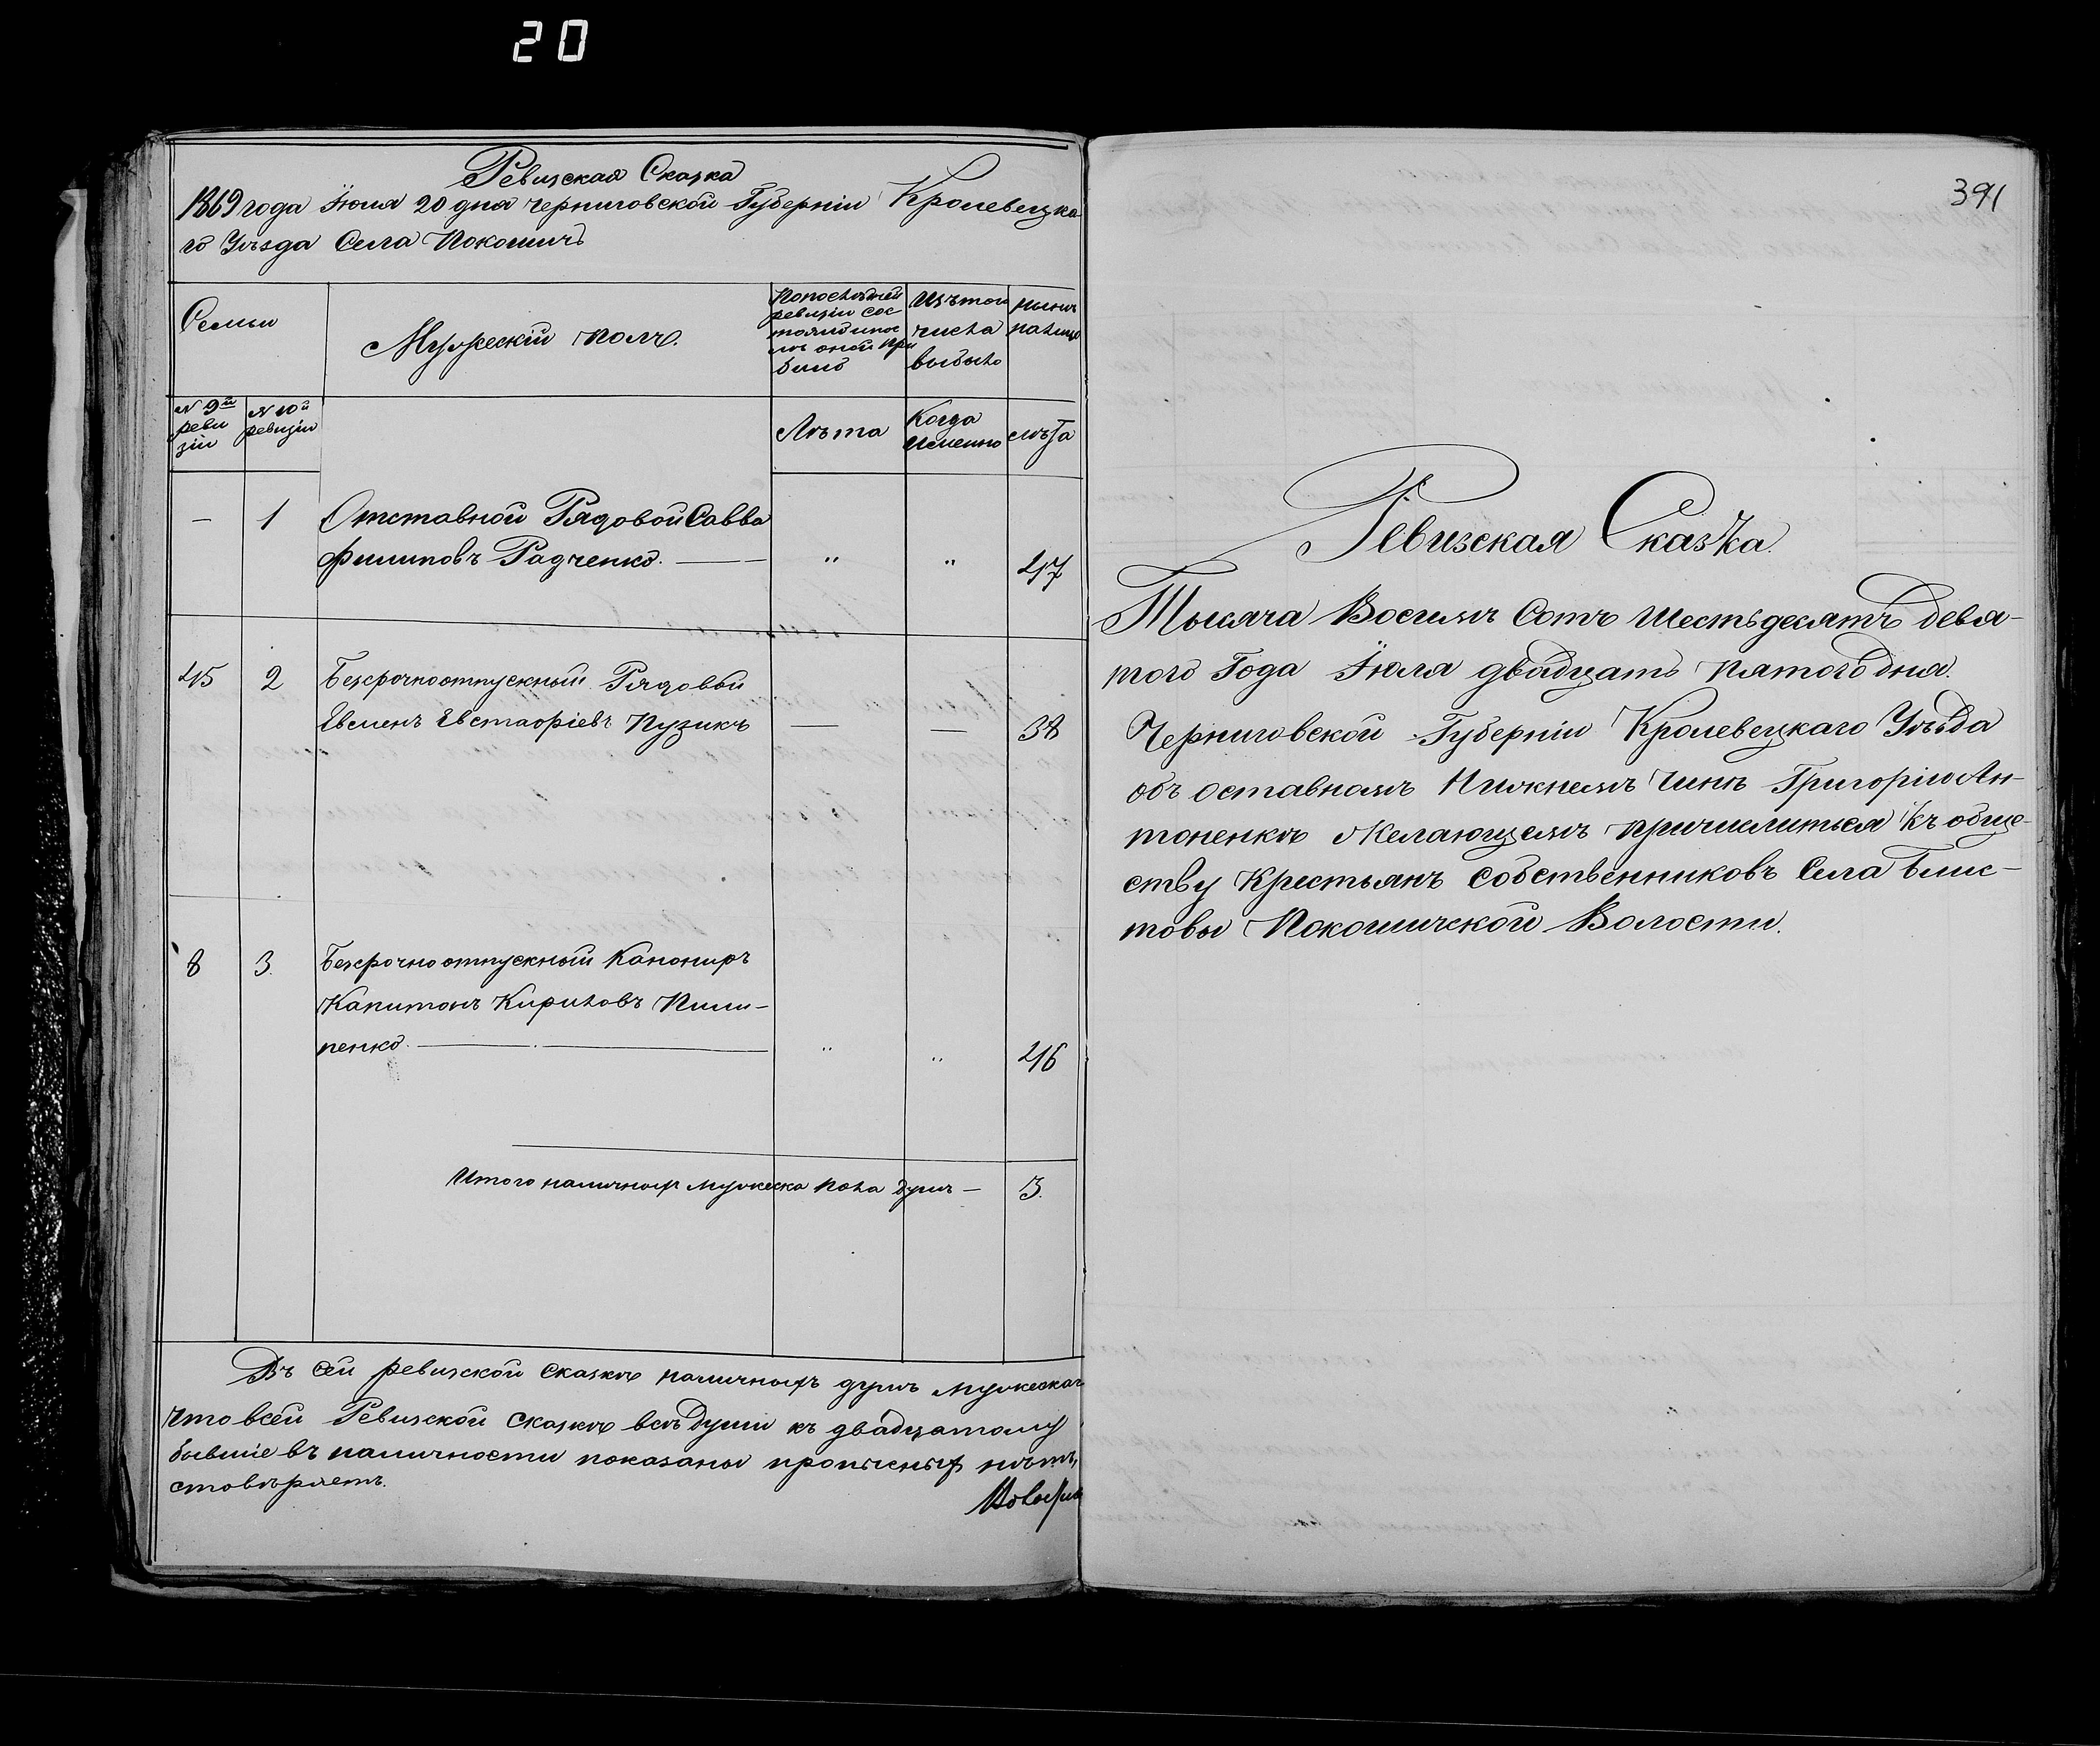 20
Ревизская Сказка
1869 года Іюля 20 дня Черниговской Губерніи Кролевецка
го Уѣзда Села Покошичъ
Семьи
Мужескій полъ.
По последней
ревизіи сос
тояло и пос
лѣ оной при
было
Изъ того
числа
выбыло
нынѣ
на лицо
№ 9й
реви
зіи
№ 10й
ревизіи
Лѣта
Когда
именно
лѣта
— 1 Отставной Рядовой Савва
Филиповъ Радченко. — " " 47
45 2 Безсрочноотпускный Рядовой
Евменъ Евстафіевъ Пузикъ — — 38
8 3. Безсрочноотпускный Канониръ
Капитонъ Кириловъ Пили-
пенко. — " " 46
Итого наличныхъ мужеска пола душъ — 3.
Въ сей ревизской сказкѣ наличныхъ душъ мужескаг
что в сей Ревизской сказкѣ всѣ души къ двадцатому
бывшіе въ наличности показаны прописныхъ нѣтъ,
стовѣряетъ.
391
Ревизская Сказка.
Тысяча Восемъ Сотъ Шестьдесятъ девя-
того Года Іюля двадцать пятого дня.
Черниговской Губерніи Кролевецкаго Уѣзда
объ оставномъ Нижнемъ Чинѣ Григоріи Ан-
тоненкѣ Желающемъ причислиться къ обще-
ству Крестьянъ Собственниковъ Села Блис-
товы Покошичской Волости.